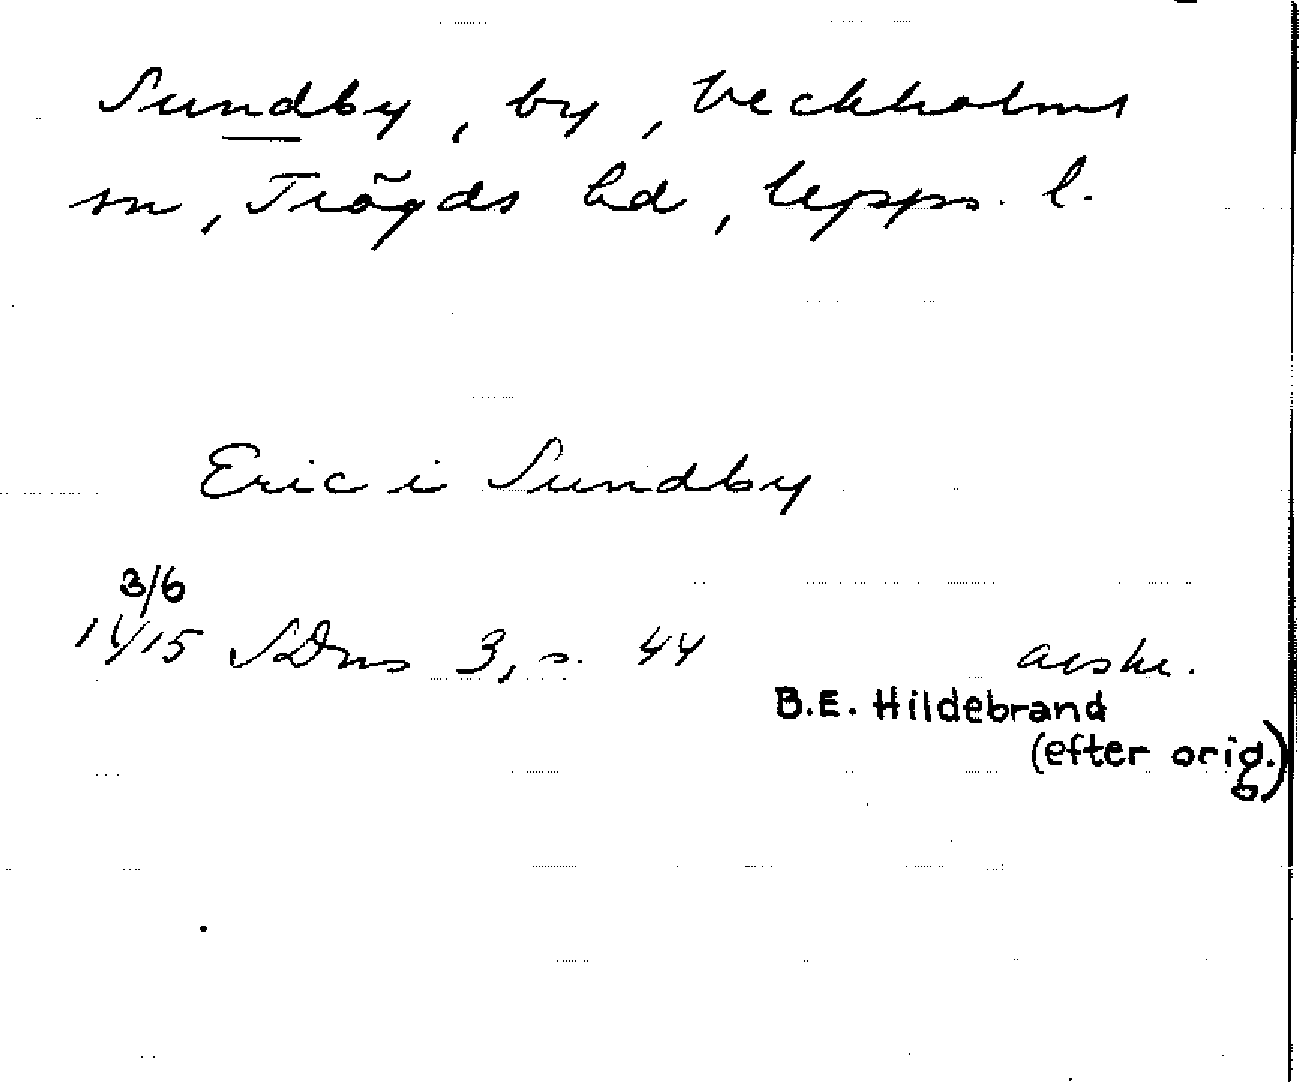 Sundby, by, Veckholms
sn, Trögds hd, Upps. l.
Eric i Sundby
3/6
1415 SDns 3, s. 44 avskr.
B.E. Hildebrand
(efter orig.)